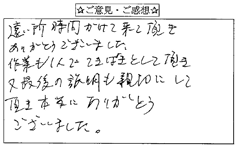 ☆ご意見・ご感想☆
遠い所時間かけて来て頂き
ありがとうございました。
作業も1人でてきぱきとして頂き
又最後の説明も親切にして
頂き本当にありがとう
ございました。